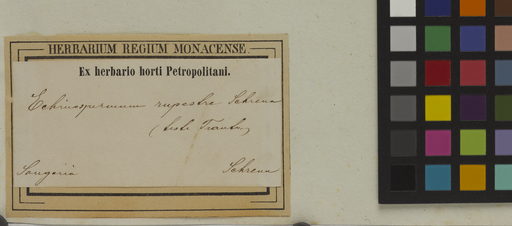 HERBARIUM REGIUM MONACENSE.
Ex herbario horti Petropolitani.
Echinospermum rupestre Schrenk
(teste Trautv.)
Songoria Schrenk